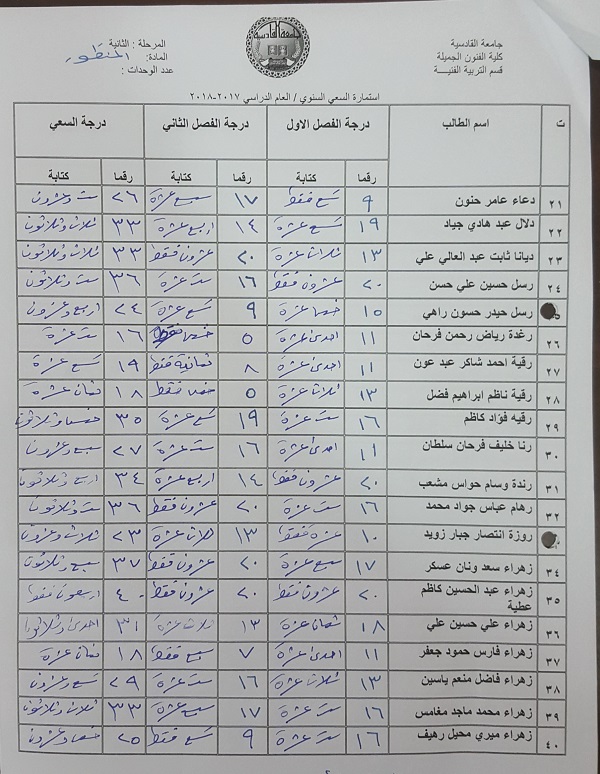 جامعة القادسية
كلية الفنون الجميلة
قسم التربية الفنية
جامعة القادسية
المرحلة : الثانية
المادة: المنظور
عدد الوحدات :
استمارة السعي السنوي / العام الدراسي ٢٠١٧-٢٠١٨
ت اسم الطالب درجة الفصل الاول درجة الفصل الثاني درجة السعي
رقما كتابة رقما كتابة رقما كتابة
٢١ دعاء عامر حنون ٩ تسع فقط ١٧ سبع عشرة ٢٦ ست وعشرون
٢٢ دلال عبد هادي جياد ١٩ تسع عشرة ١٤ اربع عشرة ٣٣ ثلاث وثلاثون
٢٣ ديانا ثابت عبد العالي علي ١٣ ثلاث عشرة ٢٠ عشرون فقط ٣٣ ثلاث وثلاثون
٢٤ رسل حسين علي حسن ٢٠ عشرون فقط ١٦ ست عشرة ٣٦ ست وثلاثون
رسل حيدر حسون راهي ١٥ خمس عشرة ٩ تسع عشرة ٢٤ اربع وعشرون
٢٦ رغدة رياض رحمن فرحان ١١ احدى عشرة ٥ خمس فقط ١٦ ست عشرة
٢٧ رقية احمد شاكر عبد عون ١١ احدى عشرة ٨ ثمانية فقط ١٩ تسع عشرة
٢٨ رقية ناظم ابراهيم فضل ١٣ ثلاث عشرة ٥ خمس فقط ١٨ ثمان عشرة
٢٩ رقيه فؤاد كاظم ١٦ ست عشرة ١٩ تسع عشرة ٣٥ خمس وثلاثون
٣٠ رنا خليف فرحان سلطان ١١ احدى عشرة ١٦ ست عشرة ٢٧ سبع وعشرون
٣١ رندة وسام حواس مشعب ٢٠ عشرون فقط ١٤ اربع عشرة ٣٤ اربع وثلاثون
٣٢ رهام عباس جواد محمد ١٦ ست عشرة ٢٠ عشرون فقط ٣٦ ست وثلاثون
روزة انتصار جبار زويد ١٠ عشرة فقط ١٣ ثلاث عشرة ٢٣ ثلاث وعشرون
٣٤ زهراء سعد ونان عسكر ١٧ سبع عشرة ٢٠ عشرون فقط ٣٧ سبع وثلاثون
٣٥ زهراء عبد الحسين كاظم عطية ٢٠ عشرون فقط ٢٠ عشرون فقط ٤٠ اربعون فقط
٣٦ زهراء علي حسين علي ١٨ ثمان عشرة ١٣ ثلاث عشرة ٣١ احدى وثلاثون
٣٧ زهراء فارس حمود جعفر ١١ احدى عشرة ٧ سبع فقط ١٨ ثمان عشرة
٣٨ زهراء فاضل منعم ياسين ١٣ ثلاث عشرة ١٦ ست عشرة ٢٩ تسع وعشرون
٣٩ زهراء محمد ماجد مغامس ١٦ ست عشرة ١٧ سبع عشرة ٣٣ ثلاث وثلاثون
٤٠ زهراء ميري محيل رهيف ١٦ ست عشرة ٩ تسع فقط ٢٥ خمس وعشرون